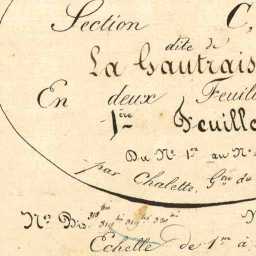 Section C,
dite de
La Gautrais
En deux Feuill
1ère Feuille
Du No. 1er au No.
par Chalette, Gre. du
No. Bis
Echelle de 1m à